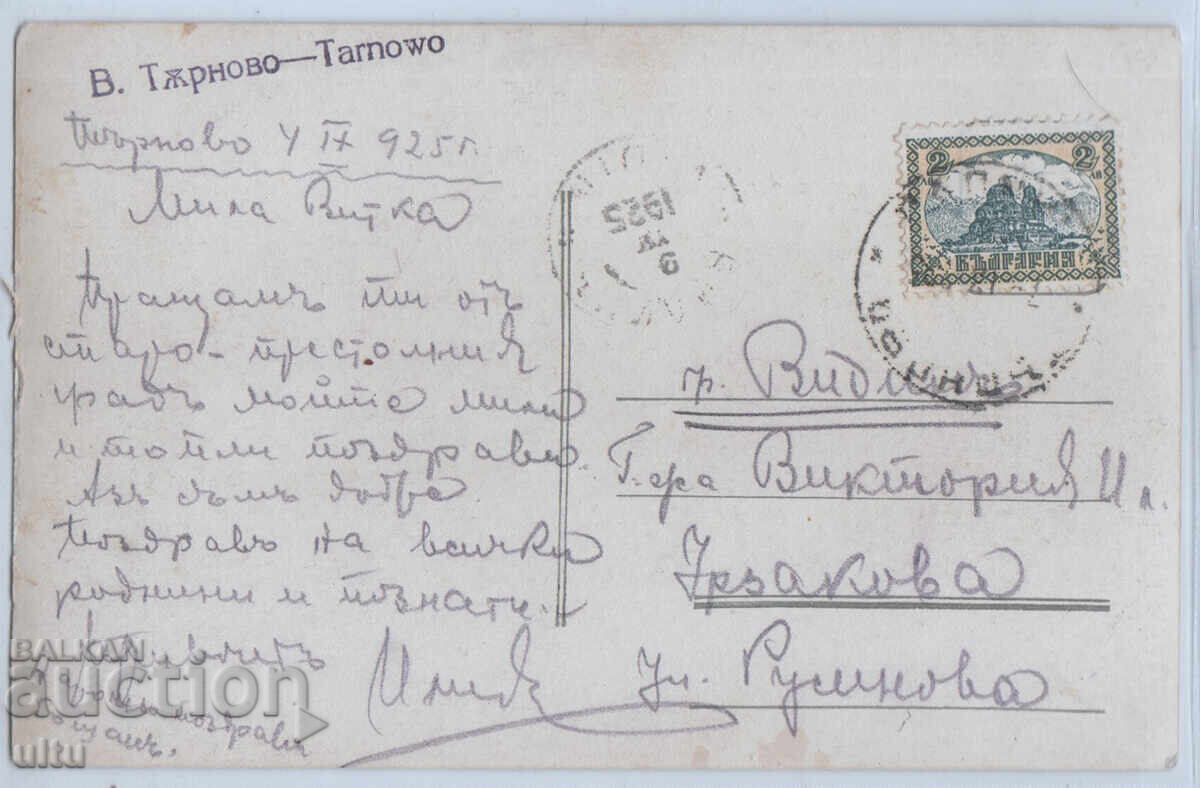 В. Тѫрново—Tarnowo
Търново 4 IX 925 г.
Мила Витка
Пращамъ ти отъ
старо-престолния
градъ моите мили
и топли поздрави.
Азъ съмъ добре
Поздравъ на всички
роднини и познати.
Илия
2 лв 2 лв
БЪЛГАРИЯ
1925
IX
6
гр. Видинъ
Г-ра Виктория И л.
Ул. Румянова
BALKAN
auction
ultu